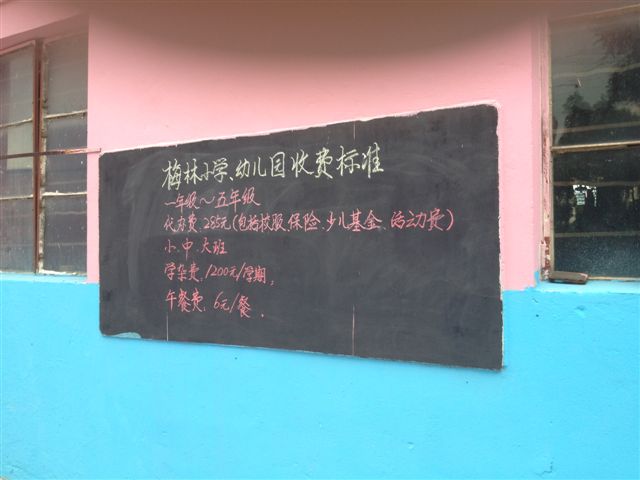 梅林小学、幼儿园收费标准
一年级～五年级
代办费:285元(包括校服、保险、少儿基金、活动费)
小、中、大班
学杂费:1200元/学期。
午餐费:6元/餐.